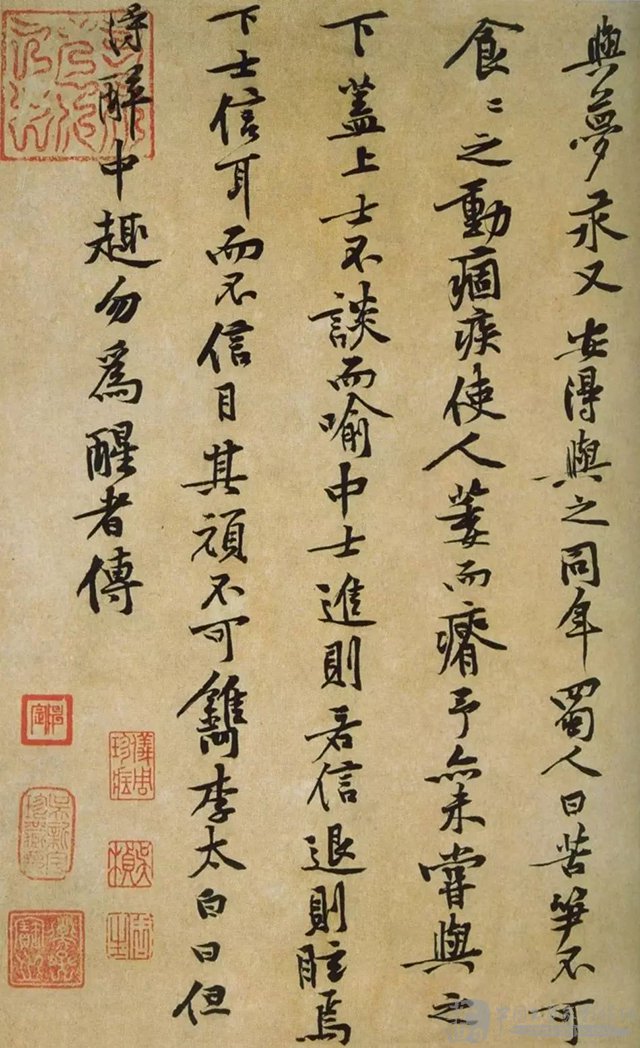 與夢汞又安得與之同年蜀人曰苦笋不可
食〻之動痼疾使人萎而瘠予亦未嘗與之
下蓋上士不談而喻中士進則若信退則眩焉
下士信耳而不信目其頑不可鐫李太白曰但
得醉中趣勿為醒者傳
儀周珍藏